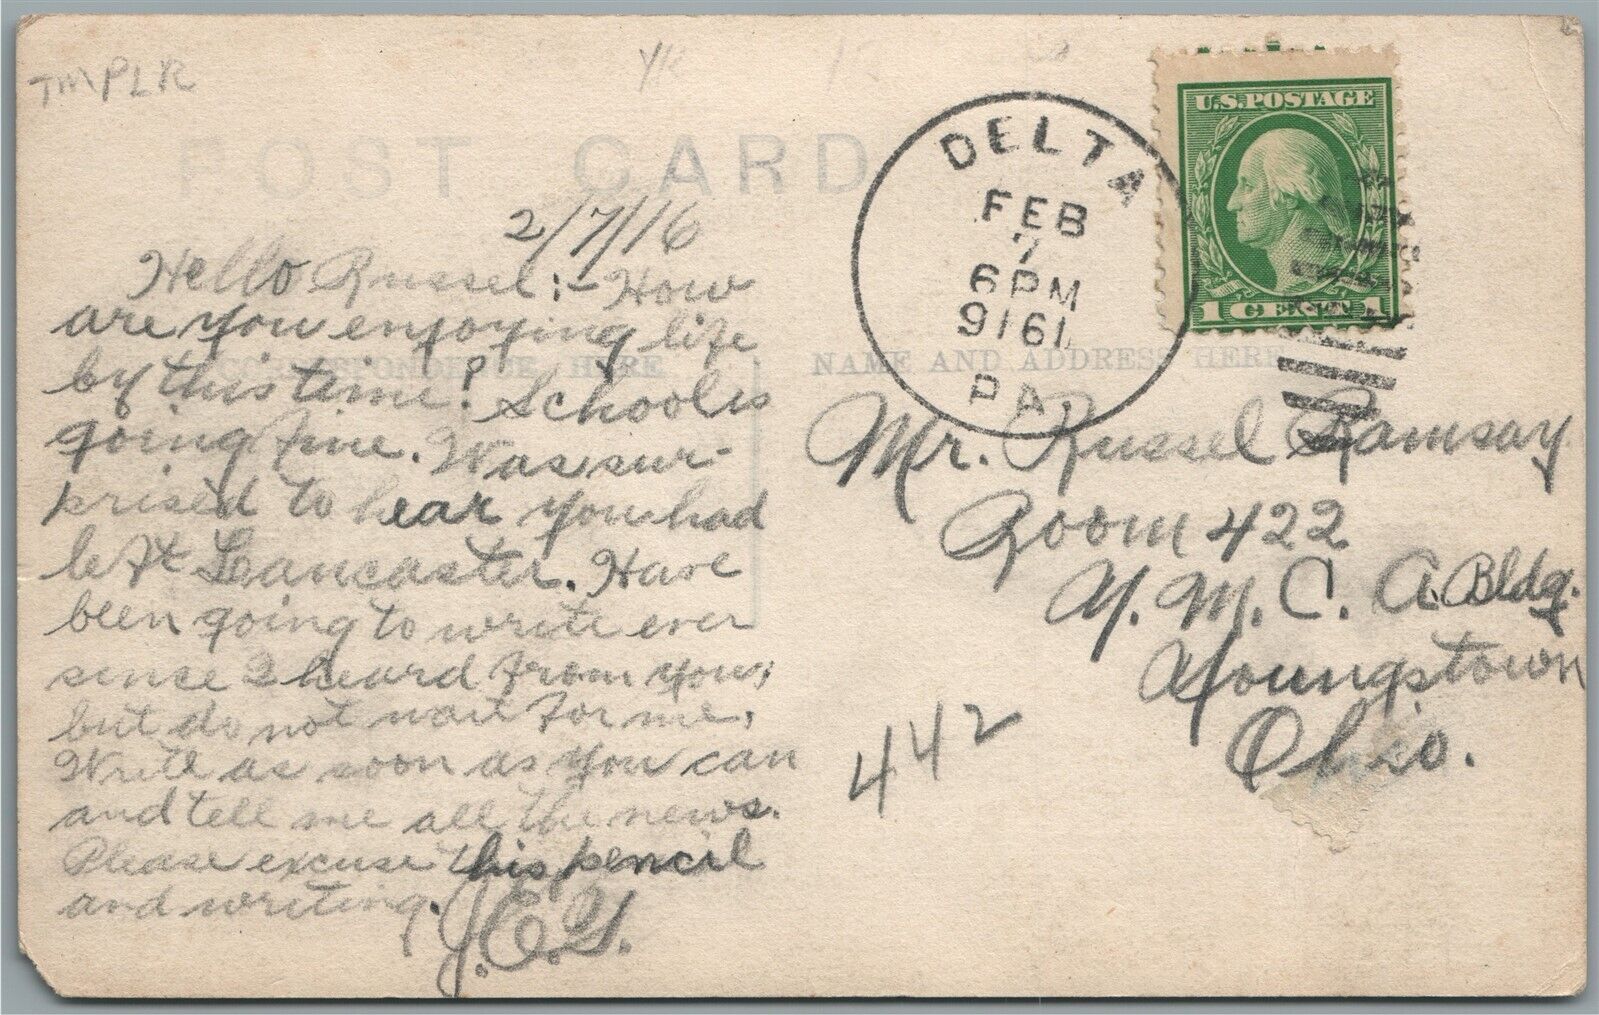 TMPLR
YK
POST CARD
2/7/16
Hello Russel:- How
are you enjoying life
by this time? School is
going fine. Was sur-
prised to hear you had
left Lancaster. Have
been going to write ever
since I heard from you;
but do not wait for me.
Write as soon as you can
and tell me all the news.
Please excuse this pencil
and writing.
J.E.Y.
CORRESPONDENCE HERE
DELTA
FEB
7
6 PM
9161
PA.
U.S. POSTAGE
1 CENT 1
NAME AND ADDRESS HERE
Mr. Russel Ramsay
Room 422
Y. M. C. A. Bldg.
Youngstown
Ohio.
442